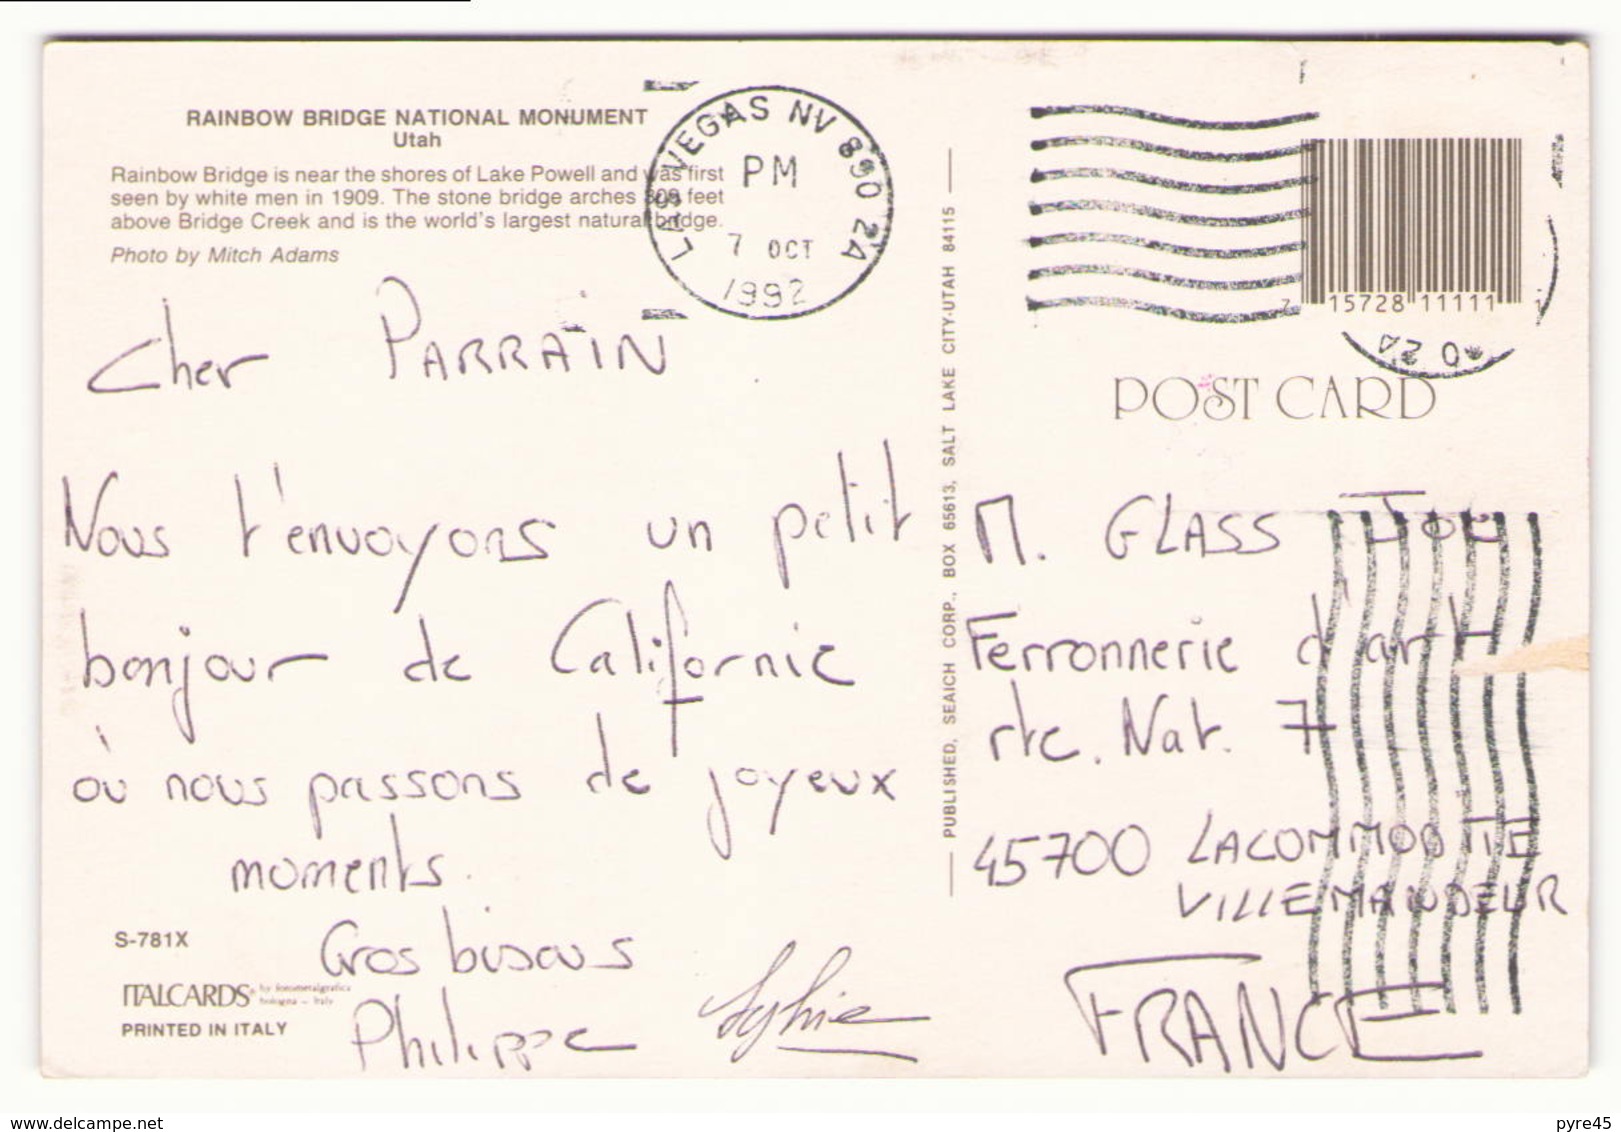 RAINBOW BRIDGE NATIONAL MONUMENT
Utah
Rainbow Bridge is near the shores of Lake Powell and was first
seen by white men in 1909. The stone bridge arches 309 feet
above Bridge Creek and is the world's largest natural bridge.
Photo by Mitch Adams
LAS VEGAS NV 890 2A
PM
7 OCT
1992
Cher PARRAIN
Nous t'envoyons un petit
bonjour de Californie
où nous passons de joyeux
moments.
Gros bisous
Philippe Sylvie
S-781X
ITALCARDS® by fotometalgrafica
bologna - Italy
PRINTED IN ITALY
PUBLISHED, SEAICH CORP., BOX 65613, SALT LAKE CITY-UTAH 84115
7 15728 11111 1
0 2A
POST CARD
M. GLASS Joe
Ferronnerie d'art
rte. Nat. 7
45700 LACOMMODITE
VILLEMANDEUR
FRANCE
www.delcampe.net
pyre45